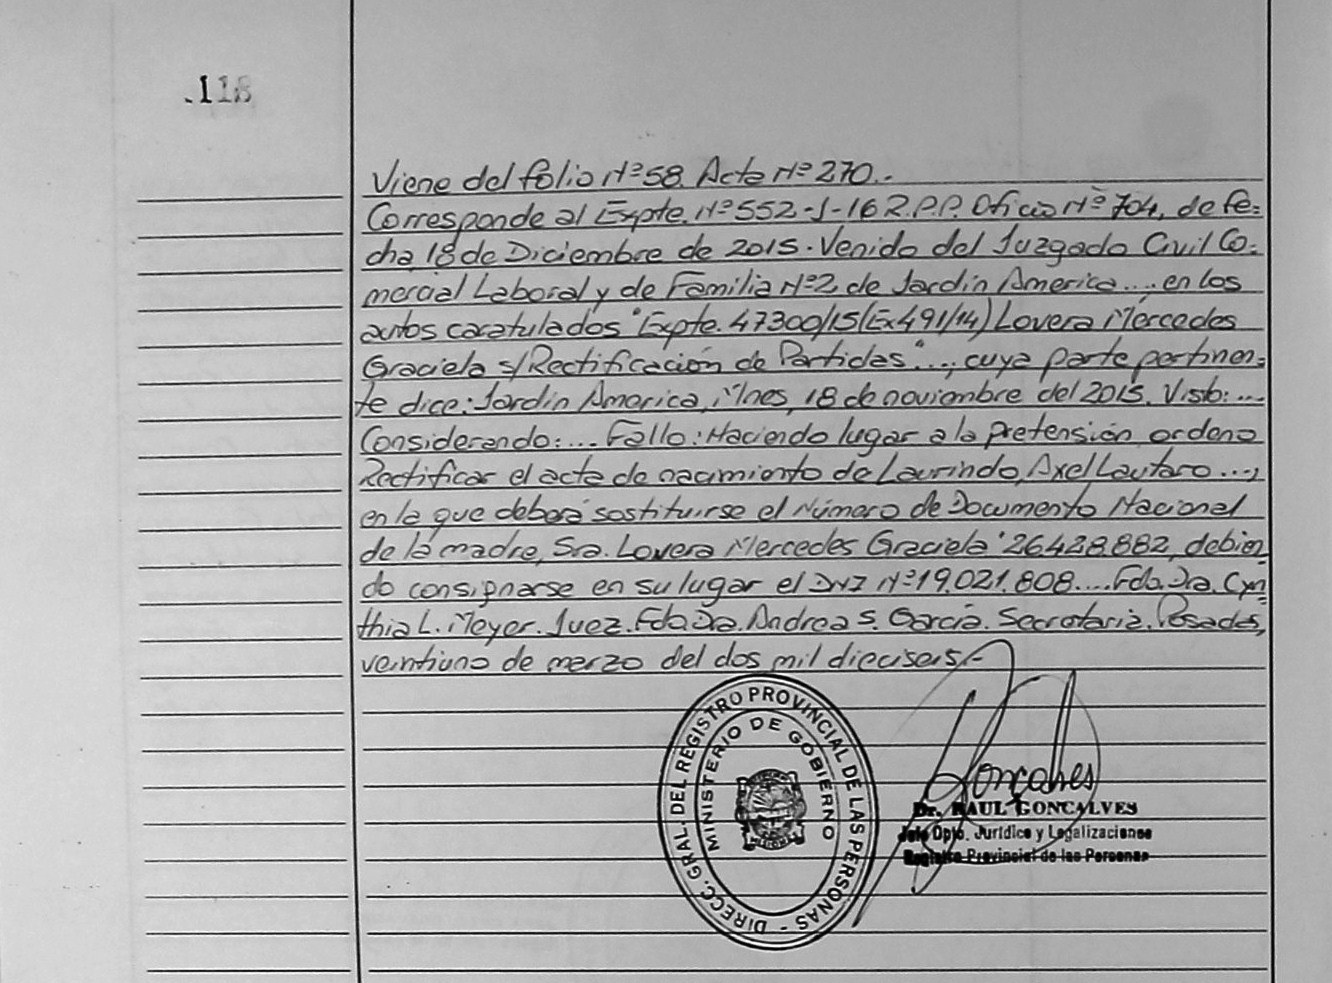 .118
Viene del folio Nº 58. Acta Nº 270.-
Corresponde al Expte. Nº 552-J-16 R.P.P. Oficio Nº 704, de fe=
cha 18 de Diciembre de 2015. Venido del Juzgado Civil Co=
mercial Laboral y de Familia Nº 2 de Jardín America..., en los
autos caratulados "Expte. 47300/15 (Ex 491/14) Lovera Mercedes
Graciela s/Rectificación de Partidas"..., cuya parte pertinen=
te dice: Jardín America, Mnes, 18 de noviembre del 2015. Visto:...
Considerando:... Fallo: Haciendo lugar a la pretensión ordeno
Rectificar el acta de nacimiento de Laurindo, Axel Lautaro...,
en la que deberá sostituirse el Número de Documento Nacional
de la madre, Sra. Lovera Mercedes Graciela "26.428.882, debien
do consignarse en su lugar el DNI Nº 19.021.808.... Fdo. Dra. Cyn=
thia L. Meyer. Juez. Fdo Dra. Andrea S. García. Secretaria. Posadas,
veintiuno de marzo del dos mil dieciseis.-
DIRECC. GRAL. DEL REGISTRO PROVINCIAL DE LAS PERSONAS -
MINISTERIO DE GOBIERNO
Goncalves
Dr. RAUL GONCALVES
Jefe Dpto. Jurídico y Legalizaciones
Registro Provincial de las Personas